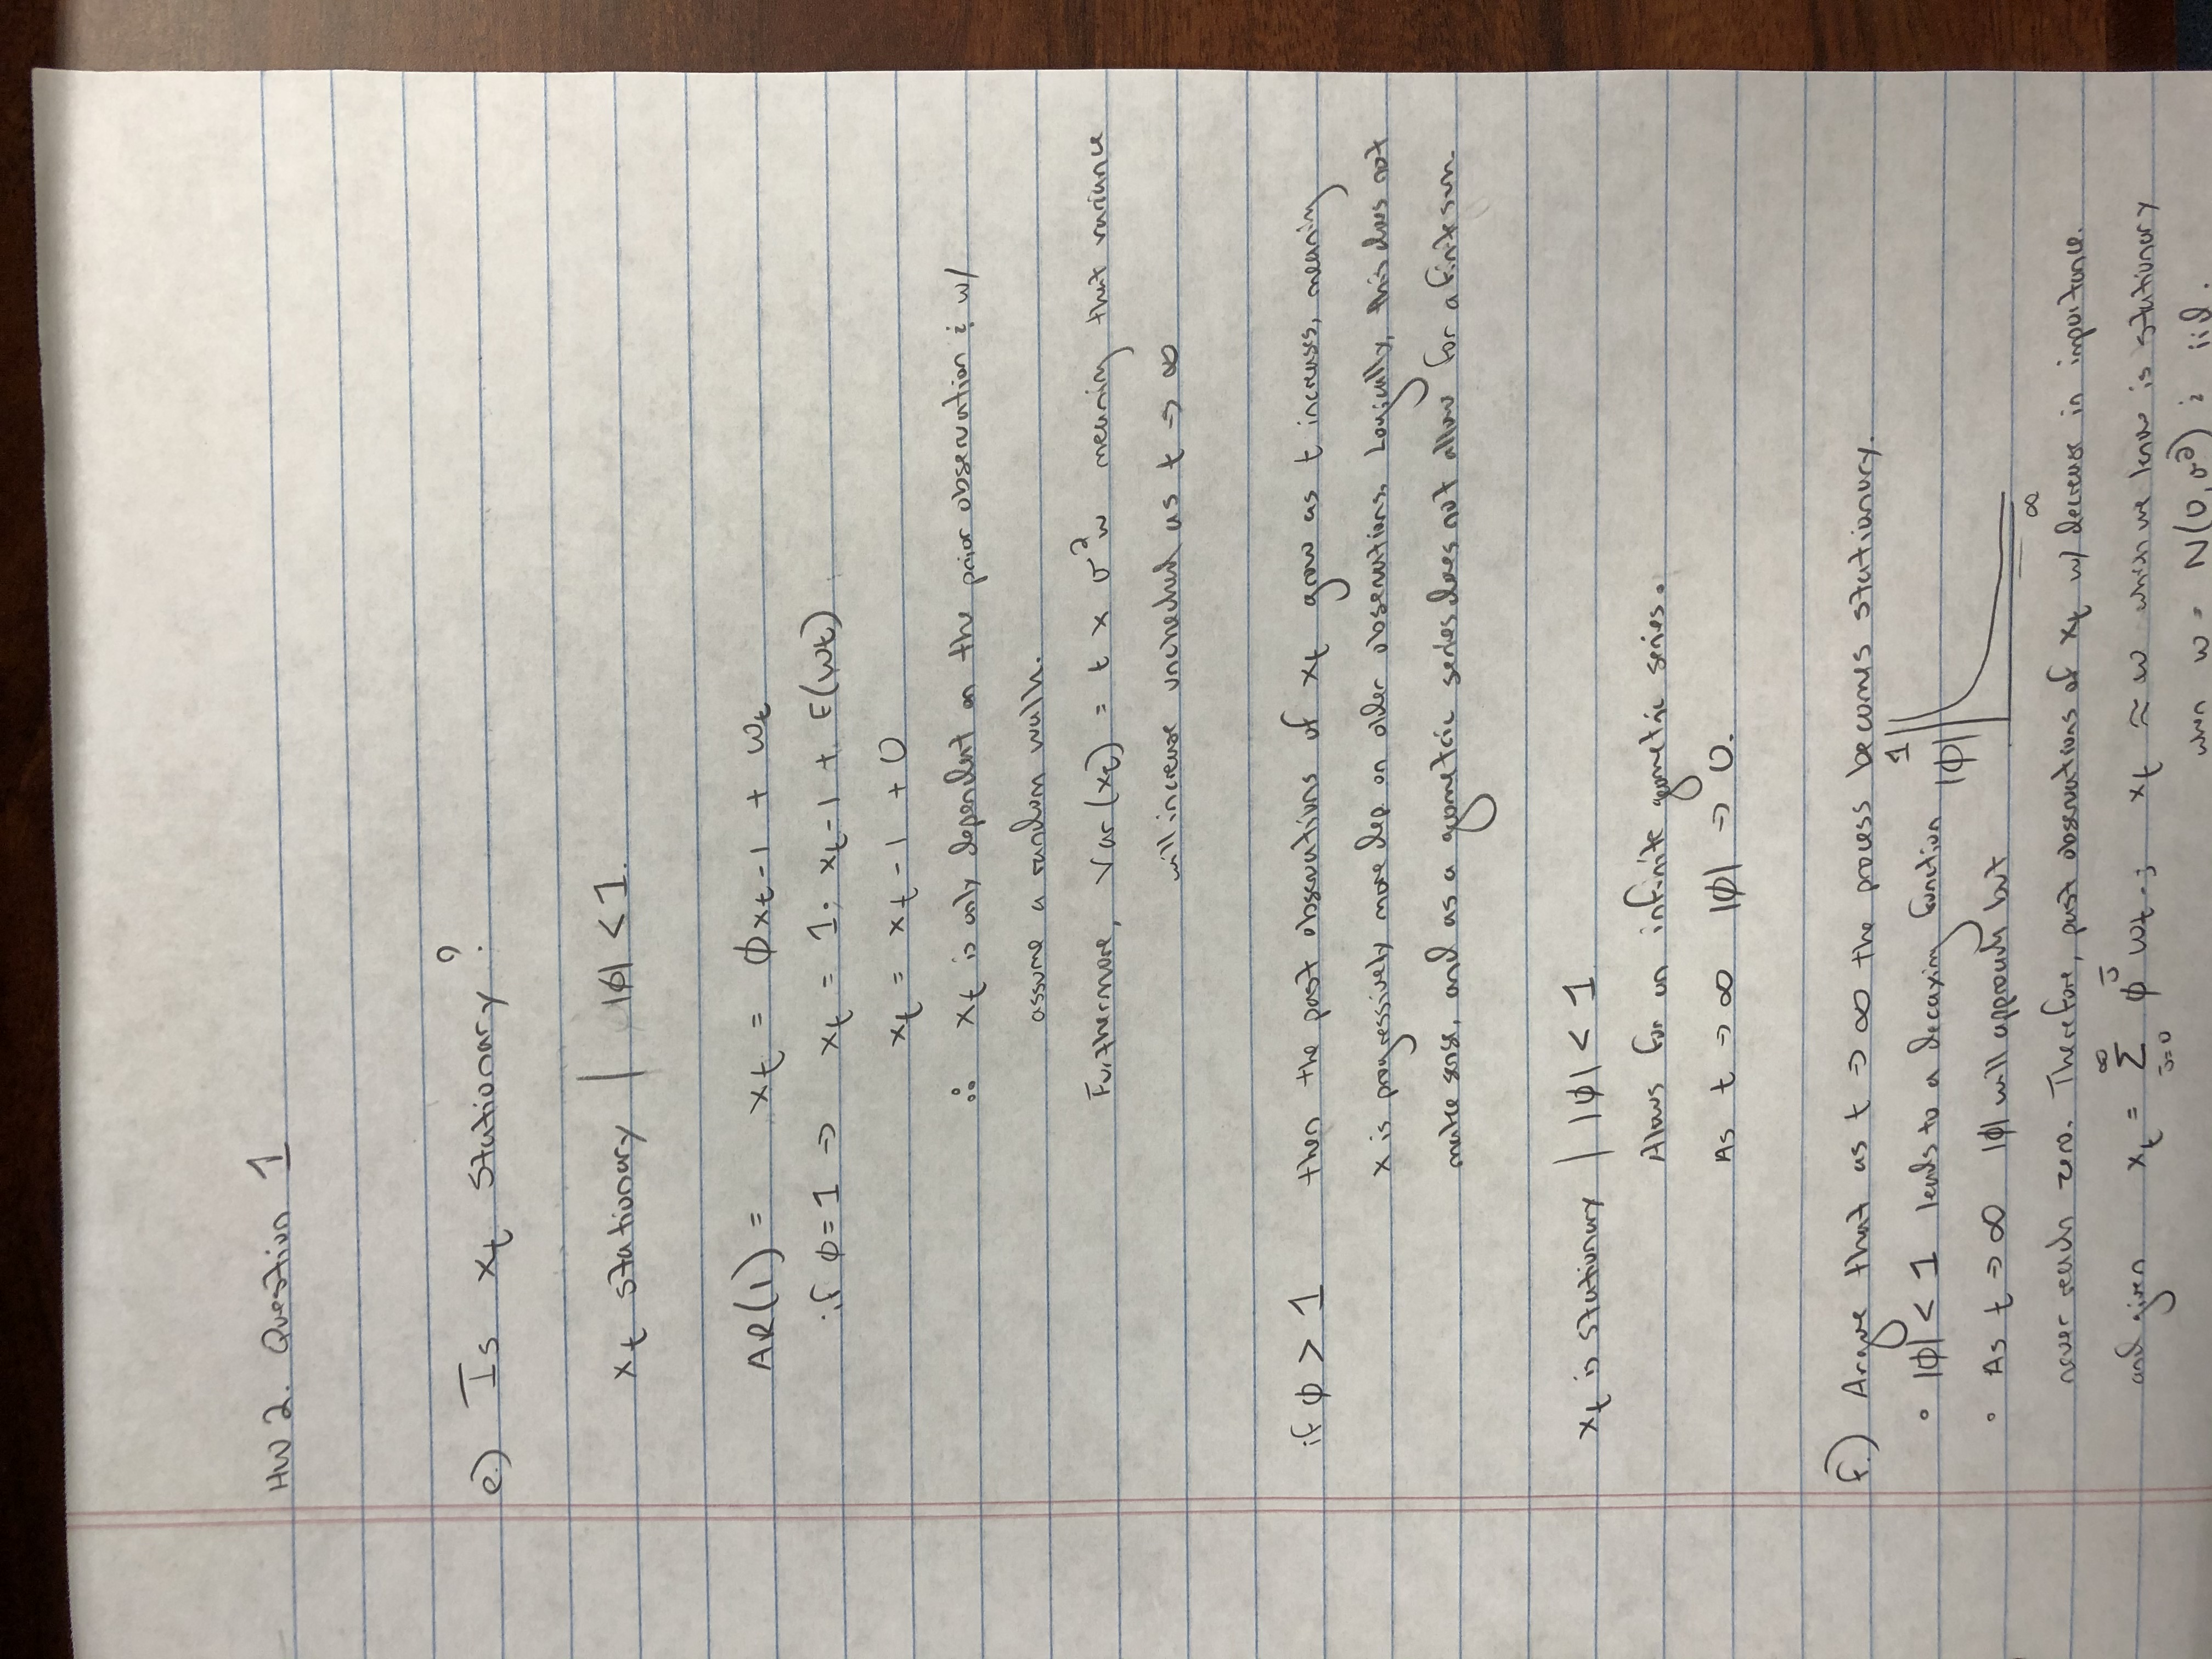 HW 2. Question 1
e.) Is x_t Stationary?
x_t stationary | |φ| < 1.
AR(1) = x_t = φx_t-1 + w_t
if φ=1 → x_t = 1 · x_t-1 + E(w_t)
x_t = x_t-1 + 0
∴ x_t is only dependent on the prior observation & w/
assume a random walk.
Furthermore, Var(x_t) = t × σ²w meaning that variance
will increase unchecked as t → ∞
if φ > 1 then the past observations of x_t grow as t increases, meaning
x is progressively more dep on older observations. Logically, this does not
make sense, and as a geometric series does not allow for a finite sum.
x_t is stationary | |φ| < 1
Allows for an infinite geometric series.
As t → ∞ |φ| → 0.
f.) Argue that as t → ∞ the process becomes stationary.
• |φ| < 1 leads to a decaying function
1
|φ|
∞
• As t → ∞ |φ| will approach but
never reach zero. Therefore, past observations of x_t w/ decrease in importance.
and given x_t = ∞ Σ j=0 φ^j w_t-j x_t ≈ w which we know is stationary
when w = N(0, σ²) & iid.